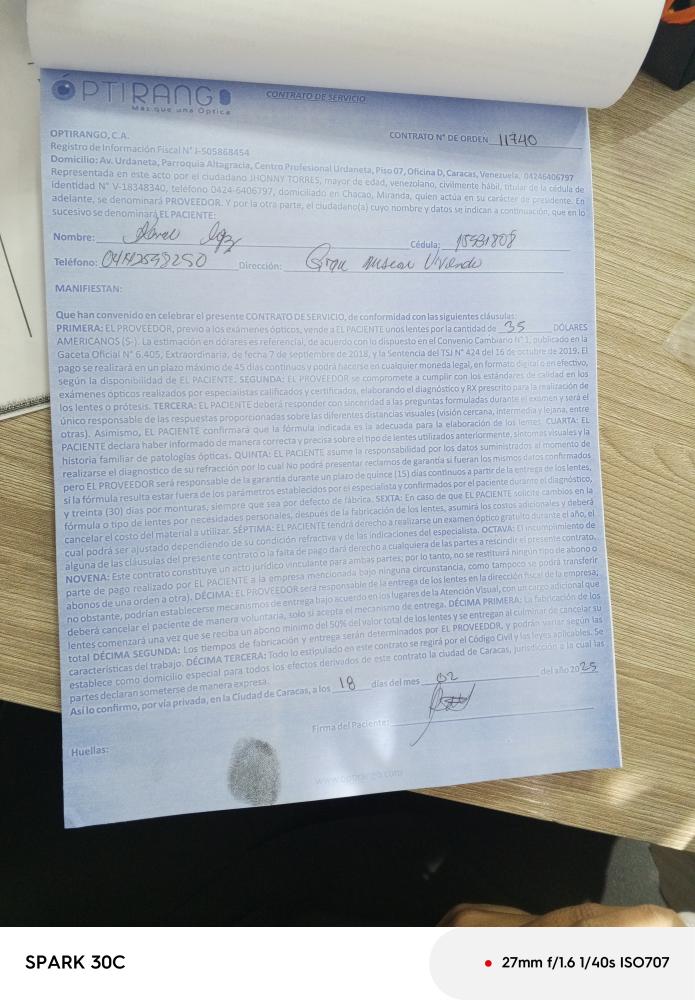 ÓPTIRANGO
Más que una Óptica
CONTRATO DE SERVICIO
OPTIRANGO, C.A.
CONTRATO N° DE ORDEN 11740
Registro de Información Fiscal N° J-505868454
Domicilio: Av. Urdaneta, Parroquia Altagracia, Centro Profesional Urdaneta, Piso 07, Oficina D, Caracas, Venezuela. 04246406797
Representada en este acto por el ciudadano JHONNY TORRES, mayor de edad, venezolano, civilmente hábil, titular de la cédula de
identidad N° V-18348340, teléfono 0424-6406797, domiciliado en Chacao, Miranda, quien actúa en su carácter de presidente. En
adelante, se denominará PROVEEDOR. Y por la otra parte, el ciudadano(a) cuyo nombre y datos se indican a continuación, que en lo
sucesivo se denominará EL PACIENTE:
Nombre: Cédula:
Teléfono: Dirección: Gran
MANIFIESTAN:
Que han convenido en celebrar el presente CONTRATO DE SERVICIO, de conformidad con las siguientes cláusulas:
PRIMERA: EL PROVEEDOR, previo a los exámenes ópticos, vende a EL PACIENTE unos lentes por la cantidad de 35 DÓLARES
AMERICANOS ($-). La estimación en dólares es referencial, de acuerdo con lo dispuesto en el Convenio Cambiario N° 1, publicado en la
Gaceta Oficial N° 6.405, Extraordinaria, de fecha 7 de septiembre de 2018, y la Sentencia del TSJ N° 424 del 16 de octubre de 2019. El
pago se realizará en un plazo máximo de 45 días continuos y podrá hacerse en cualquier moneda legal, en formato digital o en efectivo,
según la disponibilidad de EL PACIENTE. SEGUNDA: EL PROVEEDOR se compromete a cumplir con los estándares de calidad en los
exámenes ópticos realizados por especialistas calificados y certificados, elaborando el diagnóstico y RX prescrito para la realización de
los lentes o prótesis. TERCERA: EL PACIENTE deberá responder con sinceridad a las preguntas formuladas durante el examen y será el
único responsable de las respuestas proporcionadas sobre las diferentes distancias visuales (visión cercana, intermedia y lejana, entre
otras). Asimismo, EL PACIENTE confirmará que la fórmula indicada es la adecuada para la elaboración de los lentes. CUARTA: EL
PACIENTE declara haber informado de manera correcta y precisa sobre el tipo de lentes utilizados anteriormente, síntomas visuales y la
historia familiar de patologías ópticas. QUINTA: EL PACIENTE asume la responsabilidad por los datos suministrados al momento de
realizarse el diagnostico de su refracción por lo cual No podrá presentar reclamos de garantía si fueran los mismos datos confirmados
pero EL PROVEEDOR será responsable de la garantía durante un plazo de quince (15) días continuos a partir de la entrega de los lentes,
si la fórmula resulta estar fuera de los parámetros establecidos por el especialista y confirmados por el paciente durante el diagnóstico,
y treinta (30) días por monturas, siempre que sea por defecto de fábrica. SEXTA: En caso de que EL PACIENTE solicite cambios en la
fórmula o tipo de lentes por necesidades personales, después de la fabricación de los lentes, asumirá los costos adicionales y deberá
cancelar el costo del material a utilizar. SÉPTIMA: EL PACIENTE tendrá derecho a realizarse un examen óptico gratuito durante el año, el
cual podrá ser ajustado dependiendo de su condición refractiva y de las indicaciones del especialista. OCTAVA: El incumplimiento de
alguna de las cláusulas del presente contrato o la falta de pago dará derecho a cualquiera de las partes a rescindir el presente contrato.
NOVENA: Este contrato constituye un acto jurídico vinculante para ambas partes; por lo tanto, no se restituirá ningún tipo de abono o
parte de pago realizado por EL PACIENTE a la empresa mencionada bajo ninguna circunstancia, como tampoco se podrá transferir
abonos de una orden a otra). DÉCIMA: EL PROVEEDOR será responsable de la entrega de los lentes en la dirección fiscal de la empresa;
no obstante, podrían establecerse mecanismos de entrega bajo acuerdo en los lugares de la Atención Visual, con un cargo adicional que
deberá cancelar el paciente de manera voluntaria, solo si acepta el mecanismo de entrega. DÉCIMA PRIMERA: La fabricación de los
lentes comenzará una vez que se reciba un abono mínimo del 50% del valor total de los lentes y se entregan al culminar de cancelar su
total DÉCIMA SEGUNDA: Los tiempos de fabricación y entrega serán determinados por EL PROVEEDOR, y podrán variar según las
características del trabajo. DÉCIMA TERCERA: Todo lo estipulado en este contrato se regirá por el Código Civil y las leyes aplicables. Se
establece como domicilio especial para todos los efectos derivados de este contrato la ciudad de Caracas, jurisdicción a la cual las
partes declaran someterse de manera expresa.
Así lo confirmo, por vía privada, en la Ciudad de Caracas, a los 18 días del mes 02 del año 2025
Firma del Paciente:
Huellas:
www.optirango.com
SPARK 30C
27mm f/1.6 1/40s ISO707